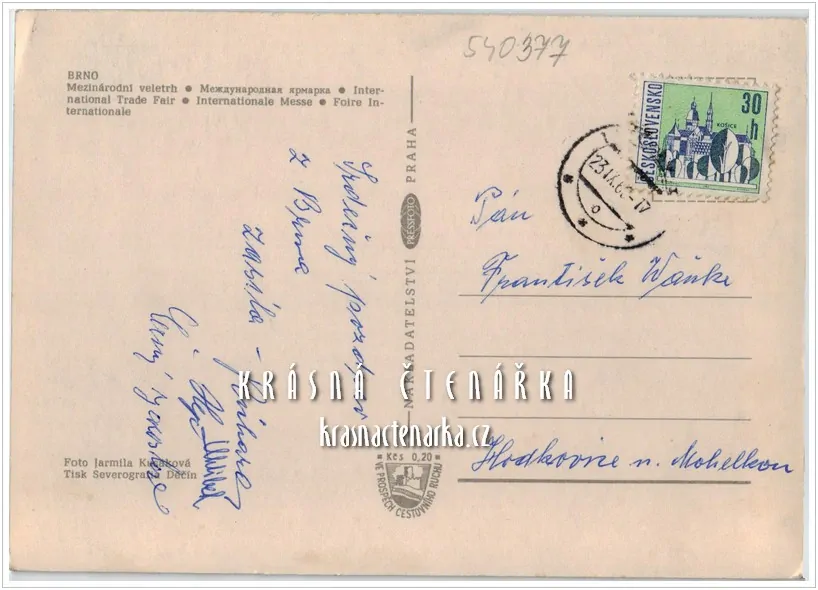 540377
BRNO
Mezinárodní veletrh ● Международная ярмарка ● Inter-
national Trade Fair ● Internationale Messe ● Foire In-
ternationale
Srdečný pozdrav
z Brna
zasílá
NAKLADATELSTVÍ PRESSFOTO PRAHA
ČESKOSLOVENSKO
30 h
KOŠICE
23.IX.6
-17
Pán
František Waňke
Hodkovice n. Mohelkou
KRÁSNÁ ČTENÁŘKA
krasnactenarka.cz
Kčs 0,20
VE PROSPĚCH CESTOVNÍHO RUCHU
Foto Jarmila
Tisk Severografia Děčín